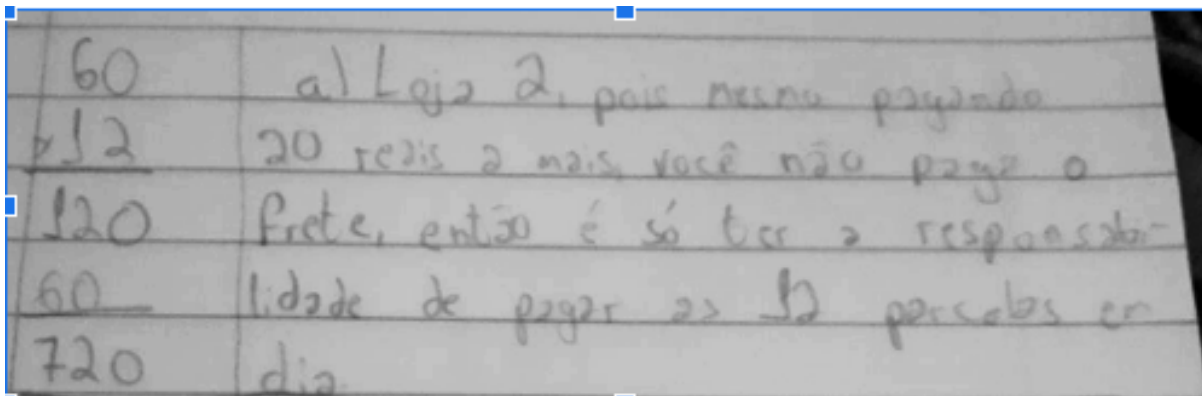 60 a) Loja 2, pois mesmo pagando
x12 20 reais a mais, você não paga o
120 frete, então é só ter a responsabi-
60 lidade de pagar as 12 parcelas em
720 dia.